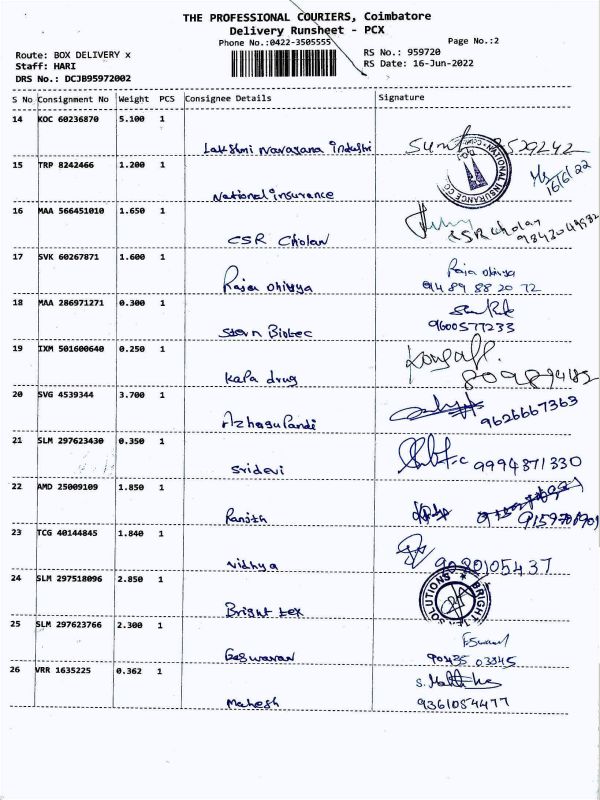 THE PROFESSIONAL COURIERS, Coimbatore
Delivery Runsheet - PCX
Phone No.:0422-3505555
Page No.:2
Route: BOX DELIVERY x
RS No.: 959720
Staff: HARI
RS Date: 16-Jun-2022
DRS No.: DCJB95972002
S No Consignment No Weight PCS Consignee Details Signature
14 KOC 60236870 5.100 1
Lakshmi Narayana Industri
15 TRP 8242466 1.200 1
National insurance
16/6/22
16 MAA 566451010 1.650 1
CSR Cholan
CSR Cholan
17 SVK 60267871 1.600 1
Raja ohivya
Raja ohivya
9489 88 20 72
18 MAA 286971271 0.300 1
Stern Biotec
9600577233
19 IXM 501600640 0.250 1
kala drug
20 SVG 4539344 3.700 1
Azhagupandi
9626667363
21 SLM 297623430 0.350 1
Sridevi
9994371330
22 AMD 25009109 1.850 1
Ranjth
23 TCG 40144845 1.840 1
Vidhya
24 SLM 297518096 2.850 1
Bright tex
BRIGHT SOLUTIONS
25 SLM 297623766 2.300 1
Eeswaran
90435 03345
26 VRR 1635225 0.362 1
Mahesh
9361054477